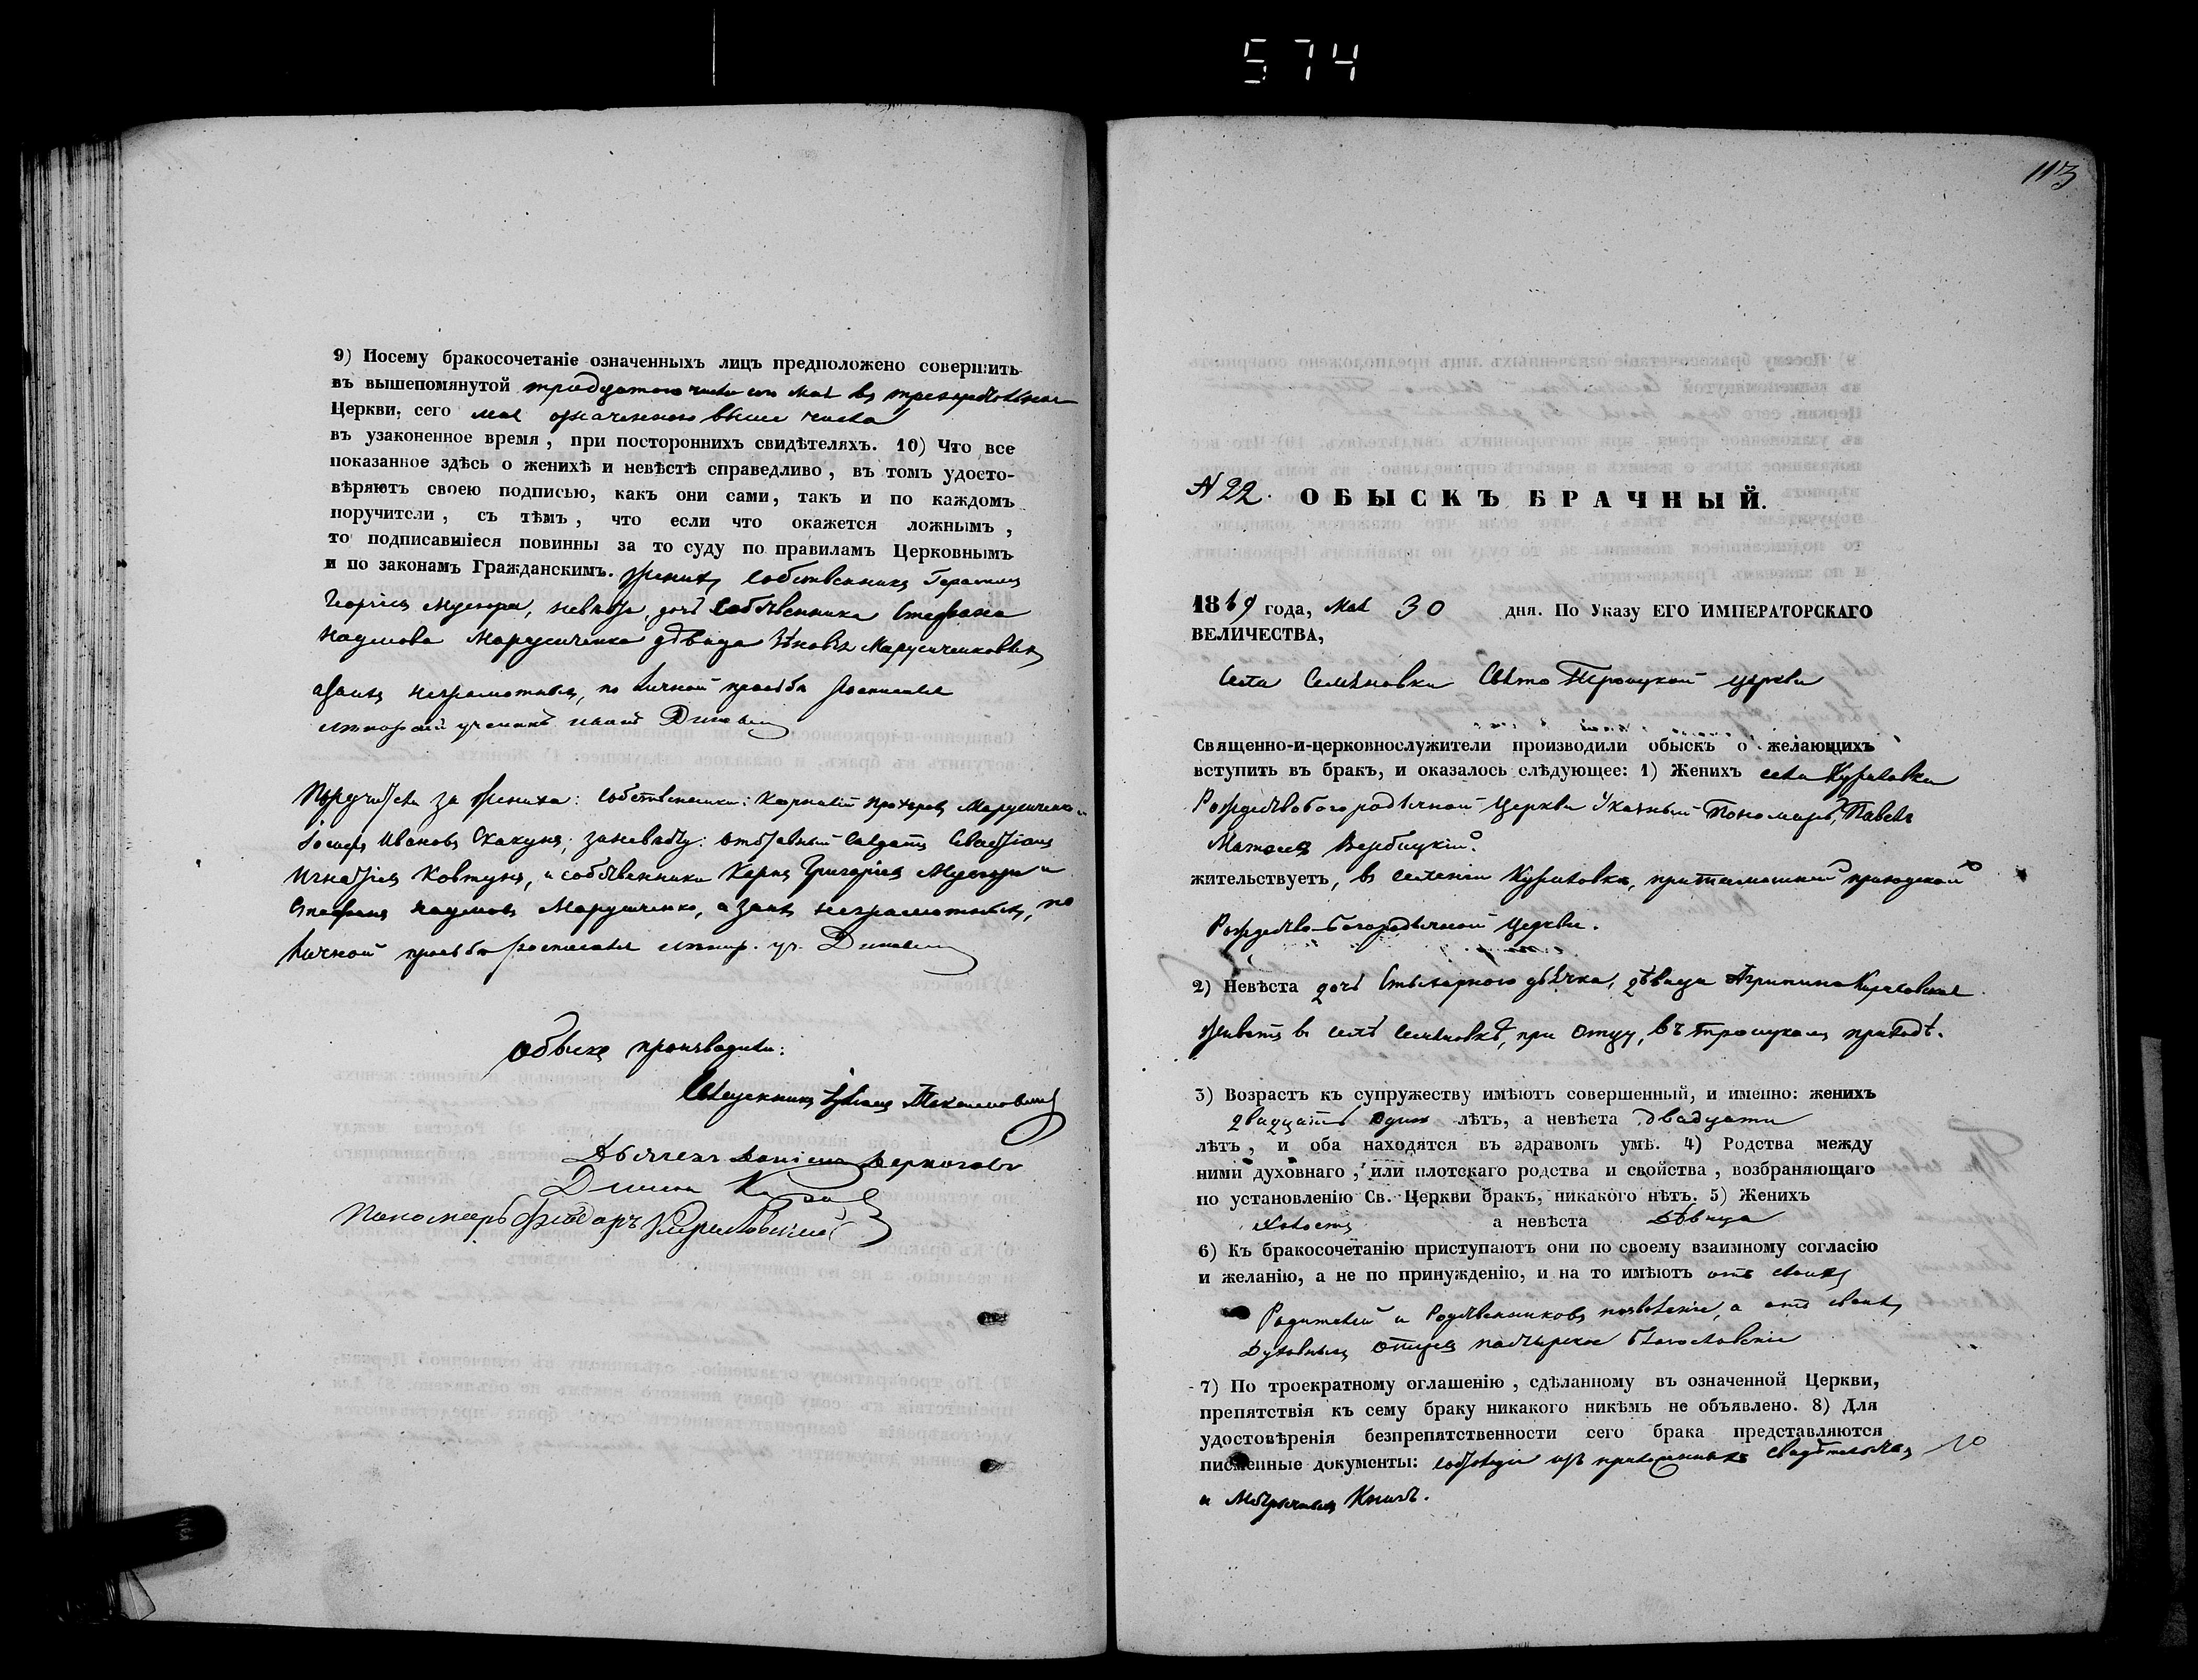 574
9) Посему бракосочетаніе означенныхъ лицъ предположено совершить
въ вышепомянутой тридцатого числа сего мая въ
Церкви, сего мая означенного выше числа
въ узаконенное время, при постороннихъ свидѣтеляхъ. 10) Что все
показанное здѣсь о женихѣ и невѣстѣ справедливо, въ томъ удосто-
вѣряютъ своею подписью, какъ они сами, такъ и по каждомъ
поручители, съ тѣмъ, что если что окажется ложнымъ,
то подписавшіеся повинны за то суду по правиламъ Церковнымъ
и по законамъ Гражданскимъ. Женихъ собственникъ Герасимъ
Георгіевъ невѣста, дочь собственника Стефана
Наумова Марусиченка дѣвица
а за нихъ неграмотныхъ, по личной просьбѣ росписался
Поручители за жениха: собственники: Корнилій Прохоровъ Марусиченко и
Іосифъ Ивановъ Скакунъ; за невѣсту: отставный солдатъ
Игнатіевъ Ковтунъ, и собственники Карпъ Григоріевъ и
Стефанъ Наумовъ Марусиченко, а за нихъ неграмотныхъ, по
личной просьбѣ росписался
Обыскъ производили:
Священникъ
Дьячекъ
Пономарь Ѳеодоръ
113
N 22. ОБЫСКЪ БРАЧНЫЙ.
1869 года, Мая 30 дня. По Указу ЕГО ИМПЕРАТОРСКАГО
ВЕЛИЧЕСТВА,
Села Семяновки Свято Троицкой церкви
Священно-и-церковнослужители производили обыскъ о желающихъ
вступить въ бракъ, и оказалось слѣдующее: 1) Женихъ села Куриловки
Рождествобогородичной Церкви Указный Пономарь, Павелъ
Матвеевъ Вербицкій.
жительствуетъ, въ селеніи Куриловкѣ, при тамошней приходской
Рождество-Богородичной Церкви.
2) Невѣста дочь дьячка, дѣвица Агрипина Кириловская
живетъ въ селѣ Семяновкѣ, при Отцу, въ Троицкомъ приходѣ.
3) Возрастъ къ супружеству имѣютъ совершенный, и именно: женихъ
двадцать одинъ лѣтъ, а невѣста двадцати
лѣтъ, и оба находятся въ здравомъ умѣ. 4) Родства между
ними духовнаго, или плотскаго родства и свойства, возбраняющаго
по установленію Св. Церкви бракъ, никакого нѣтъ. 5) Женихъ
Холостъ а невѣста Дѣвица
6) Къ бракосочетанію приступаютъ они по своему взаимному согласію
и желанію, а не по принужденію, и на то имѣютъ отъ своихъ
Родителей и Родственниковъ позволеніе, а отъ своихъ
Духовныхъ Отцевъ пастырское благословеніе
7) По троекратному оглашенію, сдѣланному въ означенной Церкви,
препятствія къ сему браку никакого никѣмъ не объявлено. 8) Для
удостовѣренія безпрепятственности сего брака представляются
писменные документы: изъ свидѣтельства
и Метрическихъ Книгъ.